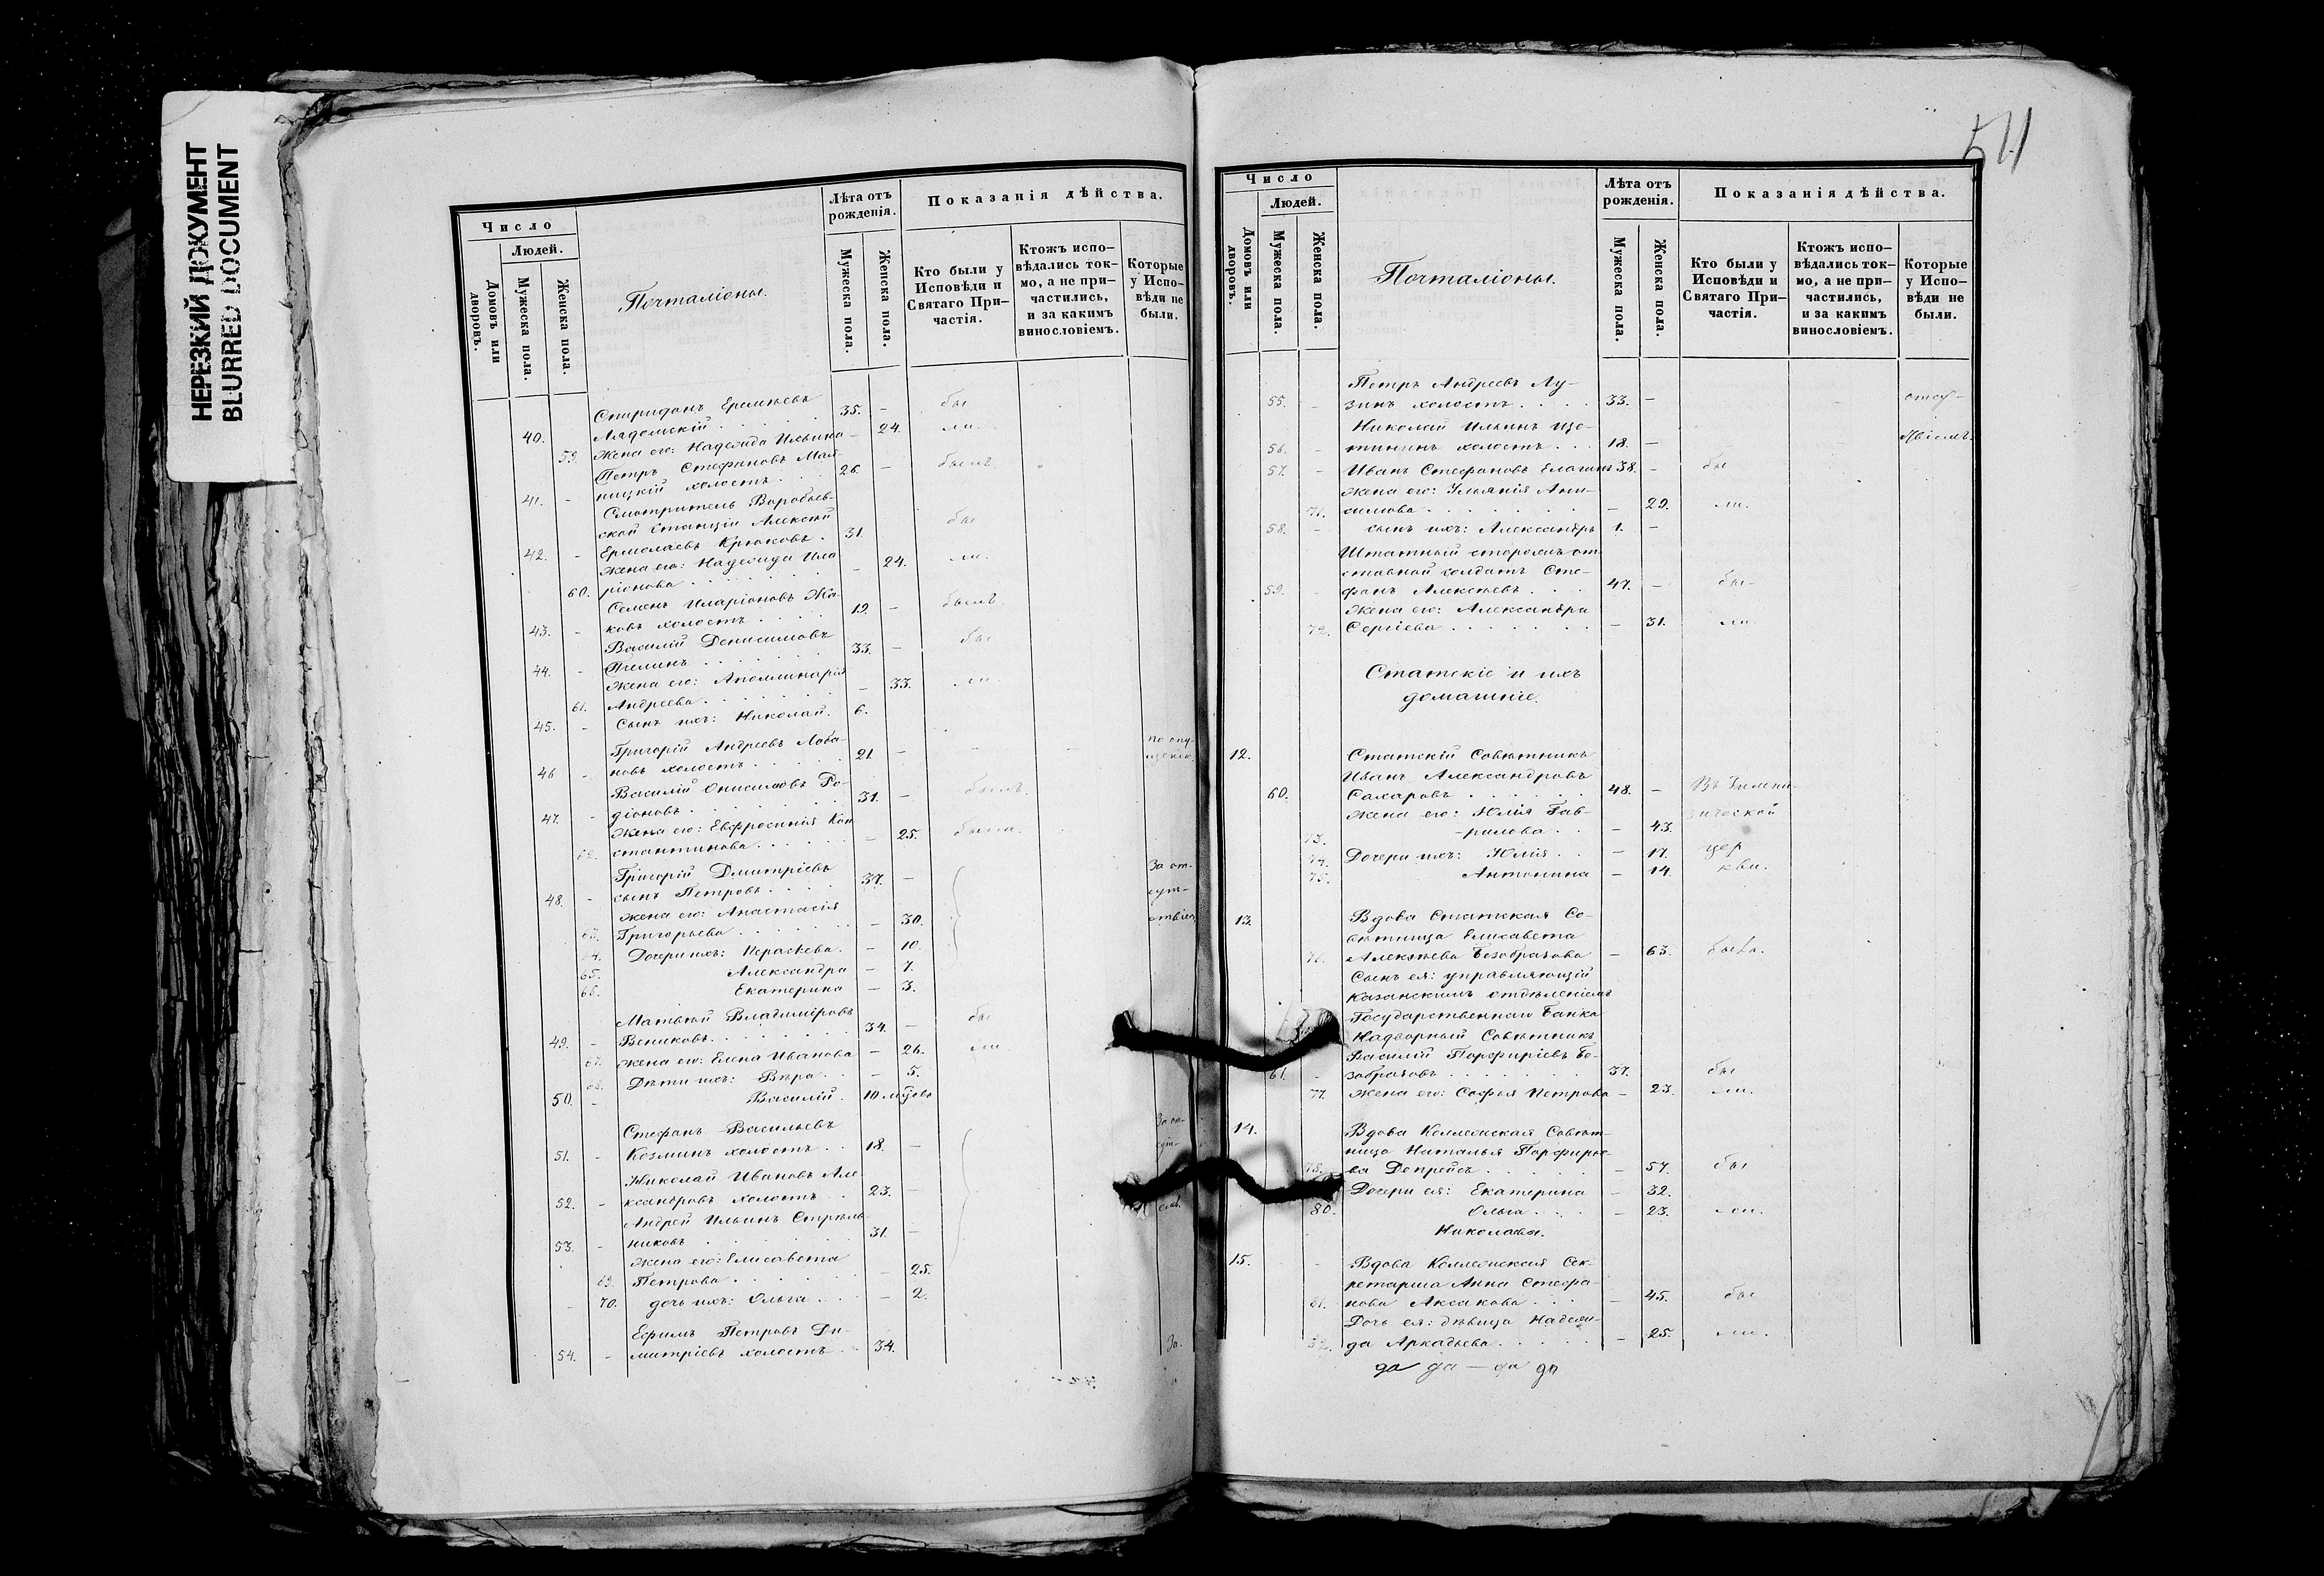 НЕРЕЗКИЙ ДОКУМЕНТ
BLURRED DOCUMENT
Число
Людей.
Домовъ или дворовъ.
Мужеска пола.
Женска пола.
Почталіоны.
Лѣта отъ рожденія.
Мужеска пола.
Женска пола.
Показанія дѣйства.
Кто были у Исповѣди и Святаго Причастія.
Ктожъ исповѣдались токмо, а не причастились, и за какимъ винословіемъ.
Которые у Исповѣди не были.
Спиридонъ Еремѣевъ
40. Лядомскій . . . 35. — бы
59. Жена его: Надежда Ильина — 24. ли.
Петръ Стефановъ
41. - ницкій холостъ . . 26. — былъ.
Смотритель Воробьев-
ской станціи Алексѣй
42. - Ермолаевъ Крюковъ . 31. бы
Жена его: Надежда Ила
60. ріонова . . . — 24. ли.
Семенъ Иларіоновъ Жа-
43. - ковъ холостъ . . . 19. — былъ.
Василій Денисимовъ
44. - Пчелинъ . . . 33. — бы
Жена его: Аполлинарія
61. Андреева . . . — 33. ли.
45. - Сынъ ихъ: Николай. 6.
Григорій Андреевъ Лоба-
46. - новъ холостъ . . . 21. — — — по опу-
щенію.
Василій Онисимовъ Ро-
47. - діоновъ . . . 31. — былъ.
Жена его: Евфросинія Кон
62. стантинова . . . — 25. была.
Григорій Дмитріевъ
48. - сынъ Петровъ . . . 37. — За от-
сут-
ствіем
Жена его: Анастасія
63. Григорьева . . . — 30.
64. Дочери ихъ: Параскева. — 10.
65. Александра — 7.
66. Екатерина — 3.
Матвѣй Владиміровъ
49. - Вениковъ . . . 34. — бы
67. Жена его: Елена Иванова — 26. ли.
68. Дѣти ихъ: Вѣра . . — 5.
50. - Василій . 10 мѣсяц.
Стефанъ Васильевъ
51. - Козминъ холостъ . . 18. —
Николай Ивановъ Але-
52. - ксандровъ холостъ . . 23. —
Андрей Ильинъ Стрѣль-
53. - никовъ . . . 31. —
Жена его: Елисавета
69. Петрова . . . — 25.
70. дочь ихъ: Ольга . . . — 2.
Ефимъ Петровъ Ди-
54. - митріевъ холостъ . . 34. За.
511
Число
Людей.
Домовъ или дворовъ.
Мужеска пола.
Женска пола.
Почталіоны.
Лѣта отъ рожденія.
Мужеска пола.
Женска пола.
Показанія дѣйства.
Кто были у Исповѣди и Святаго Причастія.
Ктожъ исповѣдались токмо, а не причастились, и за какимъ винословіемъ.
Которые у Исповѣди не были.
Петръ Андреевъ Лу-
55. - зинъ холостъ . . . 33. — отсут-
Николай Ильинъ Ще-
56. - тининъ холостъ . . . 18. — ствіемъ.
57. - Иванъ Стефановъ Елагинъ 38. — бы
Жена его: Ульянія Ани-
71. симова . . . — 29. ли.
58. - сынъ ихъ: Александръ 1. —
Штатный сторожъ от-
ставной солдатъ Сте-
59. - фанъ Алексѣевъ . . . 47. — бы-
Жена его: Александра
72. Сергіева . . . — 31. ли.
Статскіе и ихъ
домашніе.
12. Статскій Совѣтникъ
Иванъ Александровъ
60. Сахаровъ . . . 48. — Въ Гимна-
зической
Жена его: Юлія Гав-
73. -рилова . . — 43.
74. Дочери ихъ: Юлія . . — 17. цер
75. Антонина — 14. кви.
13. Вдова Статская Со-
вѣтница Елисавета
76. Алексѣева Безобразова — 63. была.
Сынъ ея: управляющій
Казанскимъ отдѣленіемъ
Государственнаго Банка
Надворный Совѣтникъ
Василій Порфиріевъ Бе-
61. - зобразовъ . . . 37. бы
77. Жена его: Софья Петрова — 23. ли.
14. Вдова Коллежская Совѣт-
ница Наталья Порфирье-
78. ва Депрейсъ . . . — 57. бы
Дочери ея: Екатерина — 32.
80. Ольга . . . — 23. ли.
Николаевы.
15. Вдова Коллежская Сек-
ретарша Анна Стефа-
81. нова Аксакова . . . — 45. бы
Дочь ея: дѣвица Надеж-
82. да Аркадьева . . . — 25. ли.
да да — да да